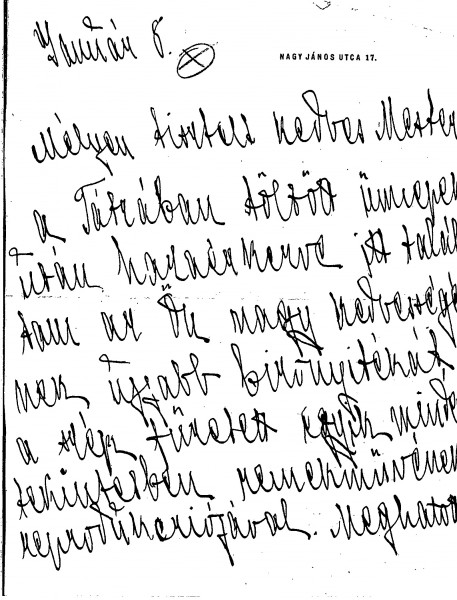 Január 8.
NAGY JÁNOS UTCA 17.
Mélyen tisztelt kedves Mester
a Tátrában töltött ünnepek
után hazaérkezve itt talál
tam az Ön nagy kedvességé
nek újabb bizonyítékát
a szép füzetet egyik minde
tekintetben remekművének
reprodukciójával. Meghatott